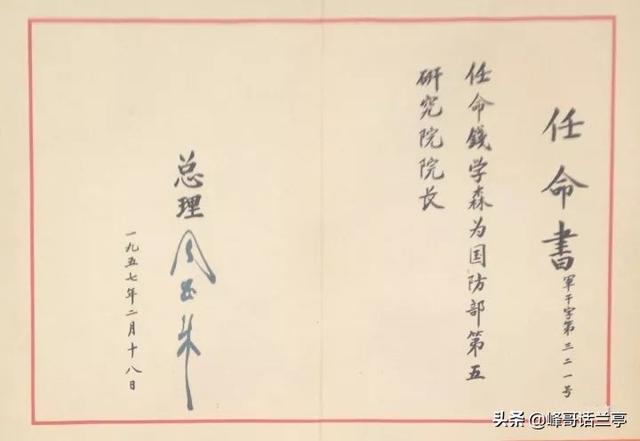 任命書
軍干字第三二一号
任命錢学森为国防部第五
研究院院长
总理 周恩来
一九五七年二月十八日
头条 @峰哥话兰亭